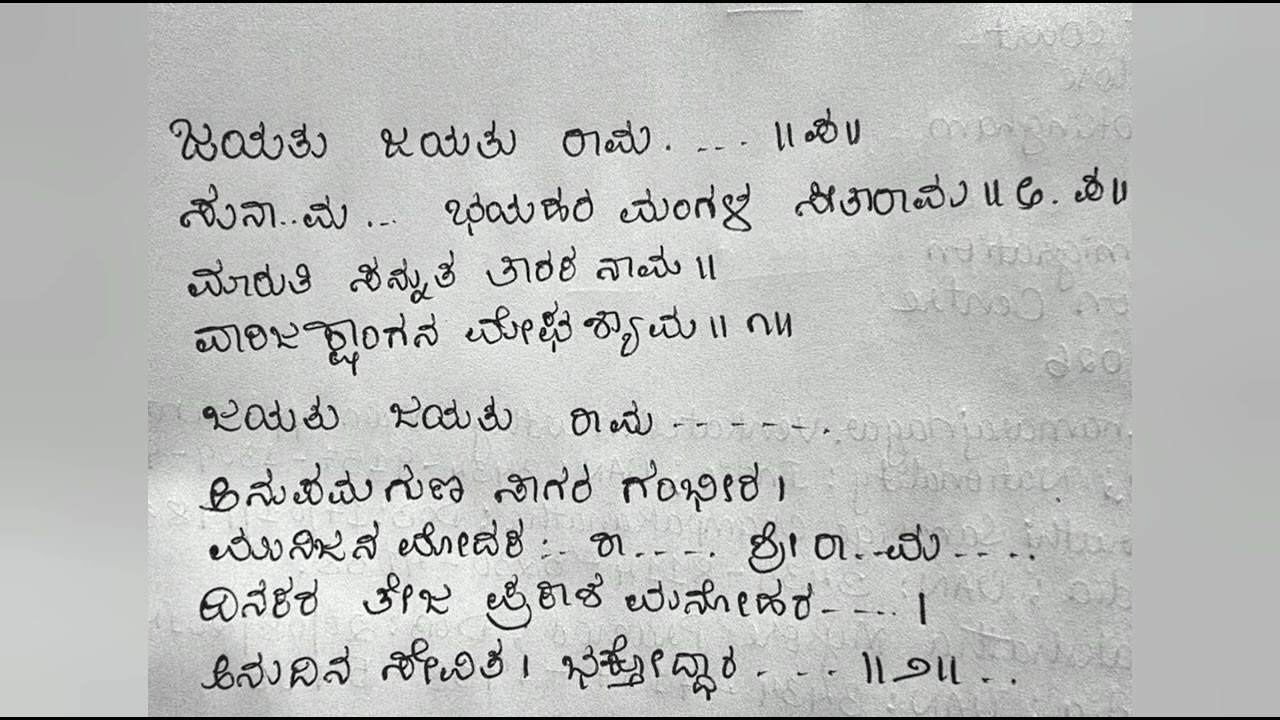 ಜಯತು ಜಯತು ರಾಮ. --- ॥ಪ॥
ಸುನಾ..ಮ... ಭಯಹರ ಮಂಗಳ ಸೀತಾರಾಮ॥ಅ.ಪ॥
ಮಾರುತಿ ಸನ್ನುತ ತಾರಕ ನಾಮ॥
ವಾರಿಜ ಮೇಘ ಶ್ಯಾಮ॥೧॥
ಜಯತು ಜಯತು ರಾಮ -------.
ಅನುಪಮಗುಣ ಸಾಗರ ಗಂಭೀರ।
ಮುನಿಜನ ಮೋದಕ :- ರಾ----. ಶ್ರೀರಾ.-ಮ---..
ದಿನಕರ ತೇಜ ಪ್ರಕಾಶ ಮನೋಹರ---- ।
ಅನುದಿನ ಸೇವಿತ। ಭಕ್ತೋದ್ಧಾರ . --. ॥೨॥ ..